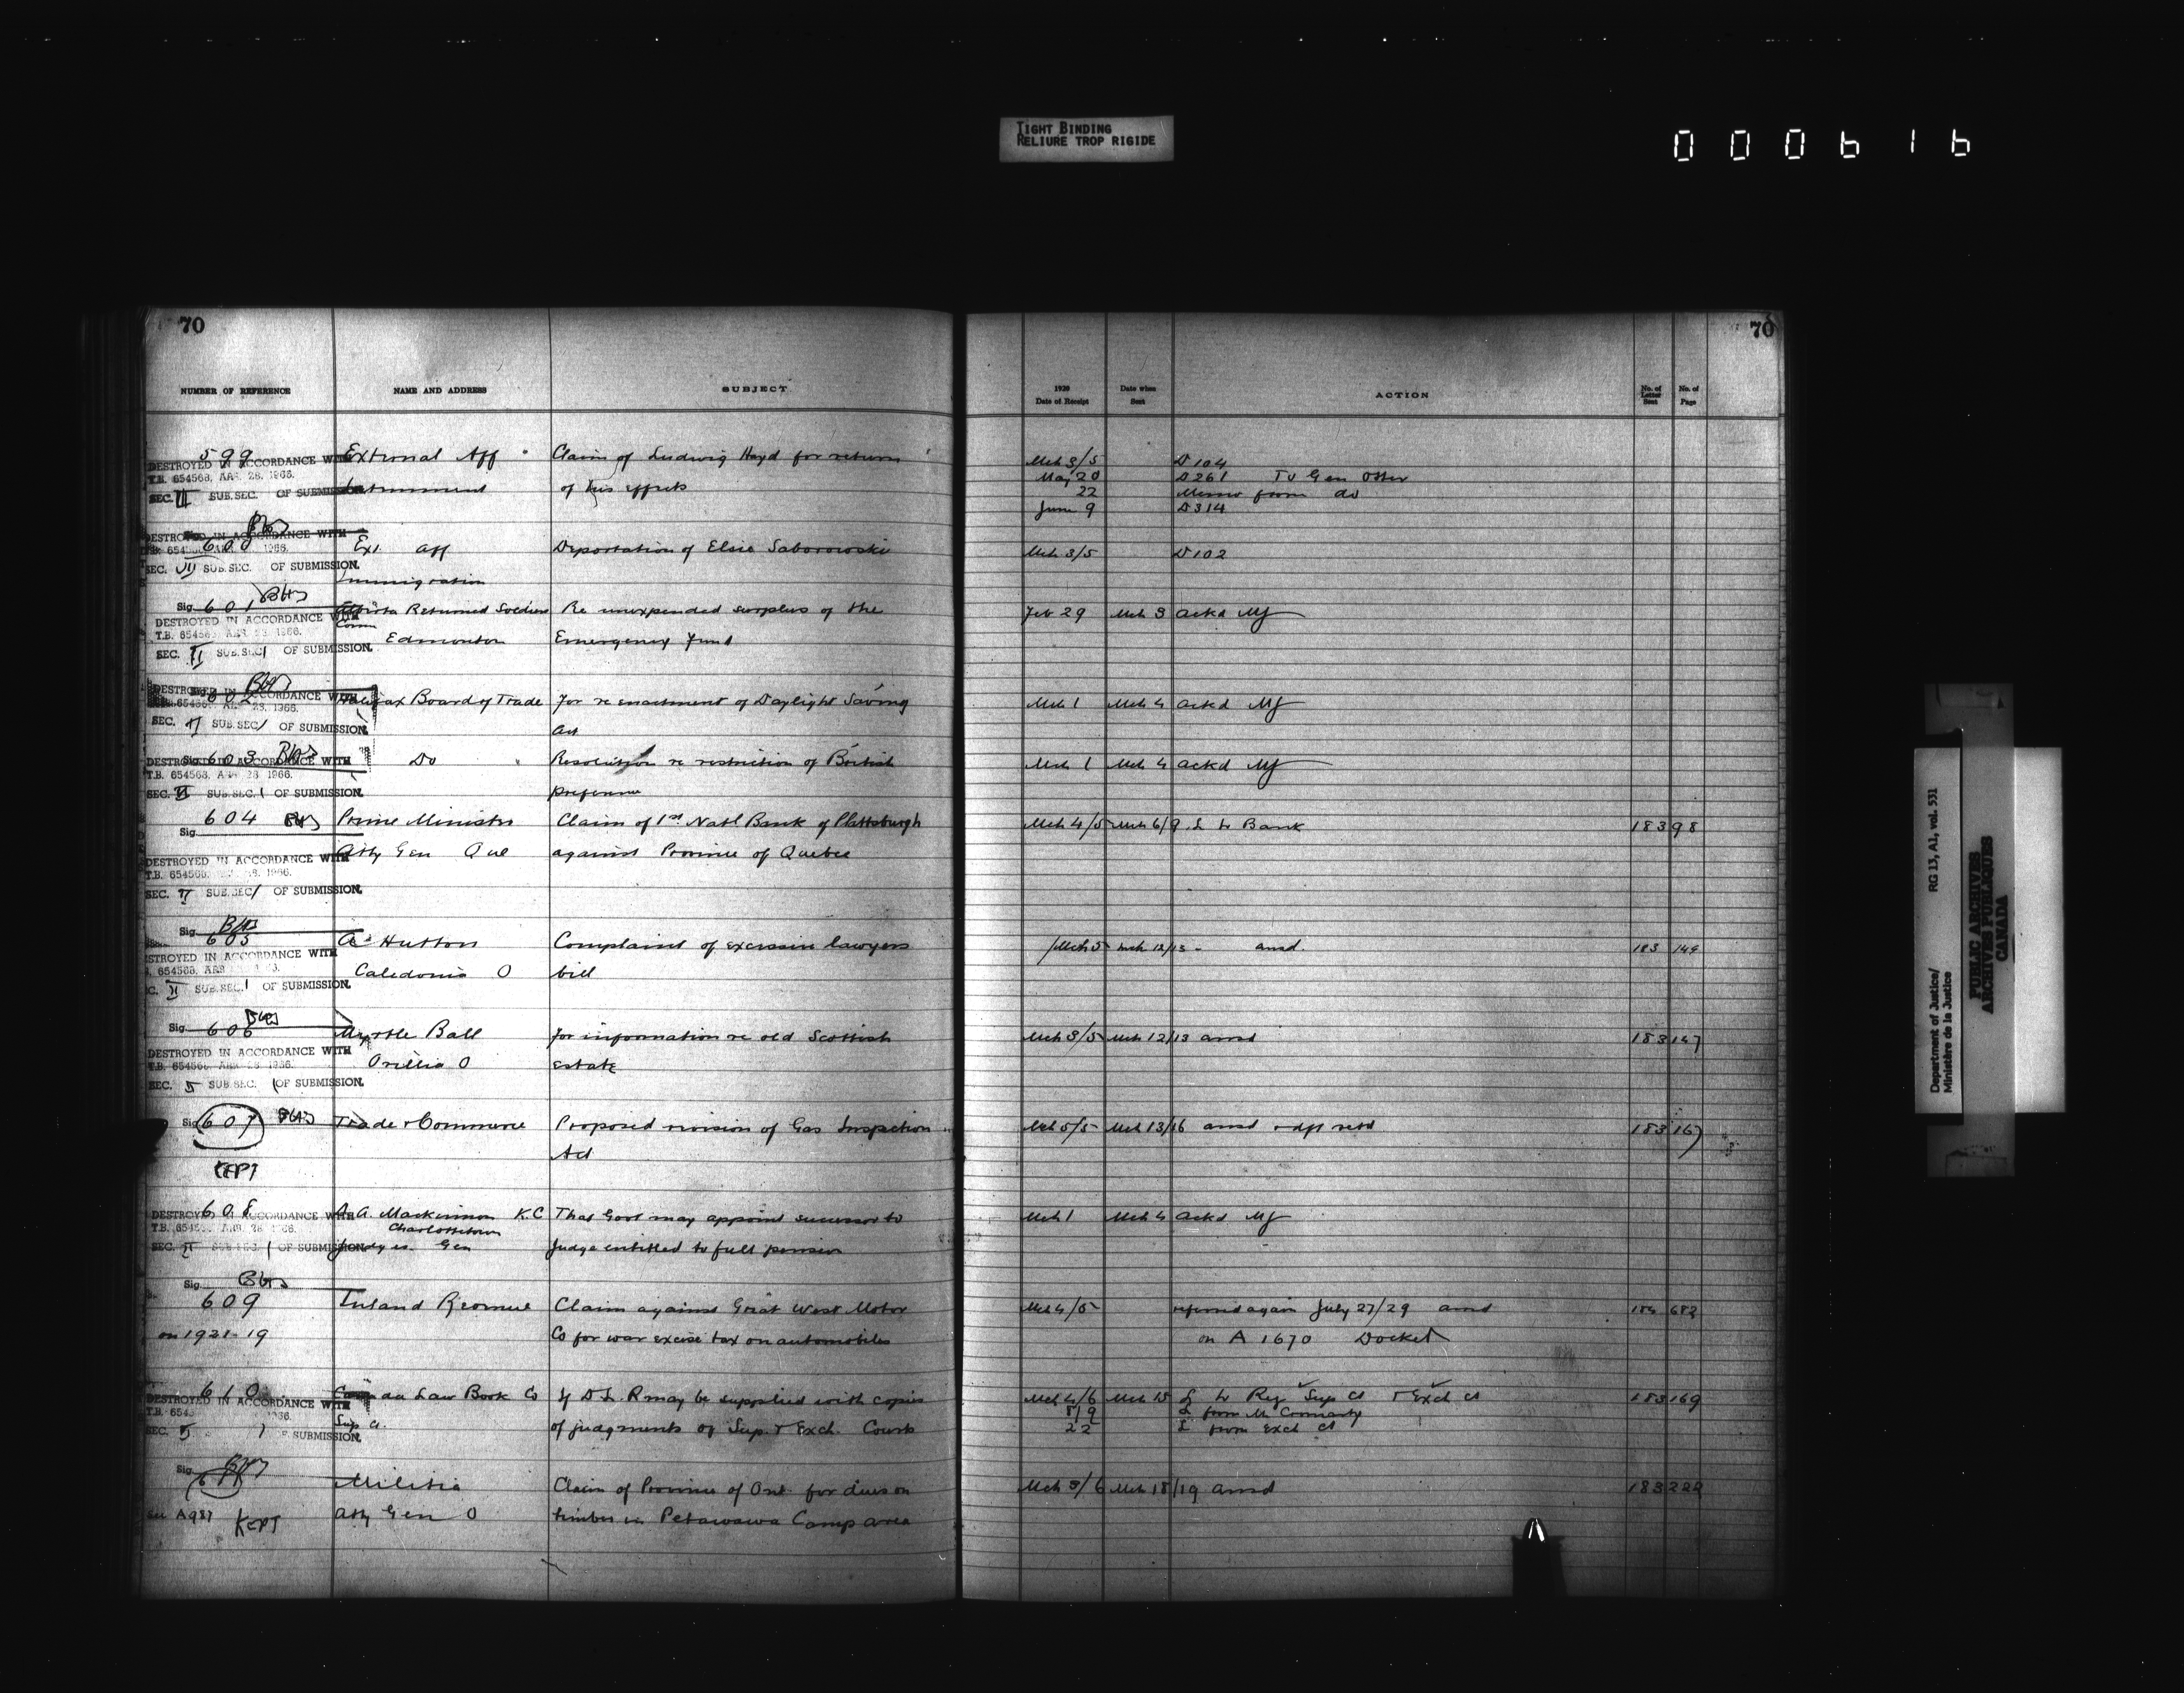 TIGHT BINDING
RELIURE TROP RIGIDE
000616
70
NUMBER OF REFERENCE NAME AND ADDRESS SUBJECT
599 External Aff Claim of Ludwig Hayd for return
DESTROYED IN ACCORDANCE WITH
T.B. 654568, APR. 28, 1966.
Internment of his effects
SEC. VII SUB.SEC. OF SUBMISSION.
DESTROYED IN ACCORDANCE WITH
600 Ext. Aff Deportation of Elsie Saborowski
SEC. VII SUB.SEC. OF SUBMISSION.
Immigration
Sig. 601 Alberta Returned Soldiers Re unexpended surplus of the
DESTROYED IN ACCORDANCE WITH
Comm
T.B. 654568 APR. 28, 1966.
Edmonton Emergency Fund
SEC. VI SUB.SEC. 1 OF SUBMISSION.
DESTROYED IN ACCORDANCE WITH
602 Halifax Board of Trade For re enactment of Daylight Saving
SEC. VI SUB.SEC. 1 OF SUBMISSION.
Act
Sig. 603 Do Resolution re restriction of British
DESTROYED IN ACCORDANCE WITH
T.B. 654568, APR. 28, 1966.
SEC. VI SUB.SEC. 1 OF SUBMISSION.
preference
604 Prime Minister Claim of 1st Natl Bank of Plattsburgh
Sig.
Atty Gen Que against Province of Quebec
DESTROYED IN ACCORDANCE WITH
T.B. 654568,
SEC. VI SUB.SEC. 1 OF SUBMISSION.
Sig.
605 Hutton Complaint of excessive lawyers
DESTROYED IN ACCORDANCE WITH
Caledonia O bill
SUB.SEC. 1 OF SUBMISSION.
Sig. 606 Myrtle Ball For information re old Scottish
DESTROYED IN ACCORDANCE WITH
Orillia O estate
SEC. SUB.SEC. 1 OF SUBMISSION.
Sig. 607 Trade & Commerce Proposed revision of Gas Inspection
Act
KEPT
608 A.A. Mackinnon K.C That Govt may appoint successor to
DESTROYED IN ACCORDANCE WITH
Charlottetown
Judges Gen Judge entitled to full pension
Sig.
609 Inland Revenue Claim against Great West Motor
on 1921-19 Co for war excise tax on automobiles
610 Canada Law Book Co If D.L.R may be supplied with copies
DESTROYED IN ACCORDANCE WITH
Sup. Ct. of judgments of Sup. & Exch. Courts
SUBMISSION.
Sig.
611 Militia Claim of Province of Ont. for dues on
A987 KEPT Atty Gen O timber in Petawawa Camp area
70
1920
Date of Receipt Date when Sent ACTION No. of Letter Sent No. of Page
Mch 3/5 D104
May 20 D261 To Gen Otter
22 Memo from do
June 9 D314
Mch 3/5 D102
Feb 29 Mch 3 ackd MJ
Mch 1 Mch 4 ackd MJ
Mch 1 Mch 4 ackd MJ
Mch 4/5 Mch 6/9 L to Bank 183 98
Mch 5 Mch 12/13 ansd. 183 149
Mch 3/5 Mch 12/13 ansd 183 147
Mch 5/5 Mch 13/16 ansd & dft retd 183 167
Mch 1 Mch 4 ackd MJ
Mch 4/5 referred again July 27/29 ansd 682
on A 1670 Docket
Mch 4/6 Mch 15 L to Reg Sup Ct & Exch Ct 183 169
8/9 L from
22 L from Exch Ct
Mch 3/6 Mch 18/19 ansd 183 222
Department of Justice/ RG 13, A1, vol. 531
Ministère de la Justice
PUBLIC ARCHIVES
ARCHIVES PUBLIQUES
CANADA